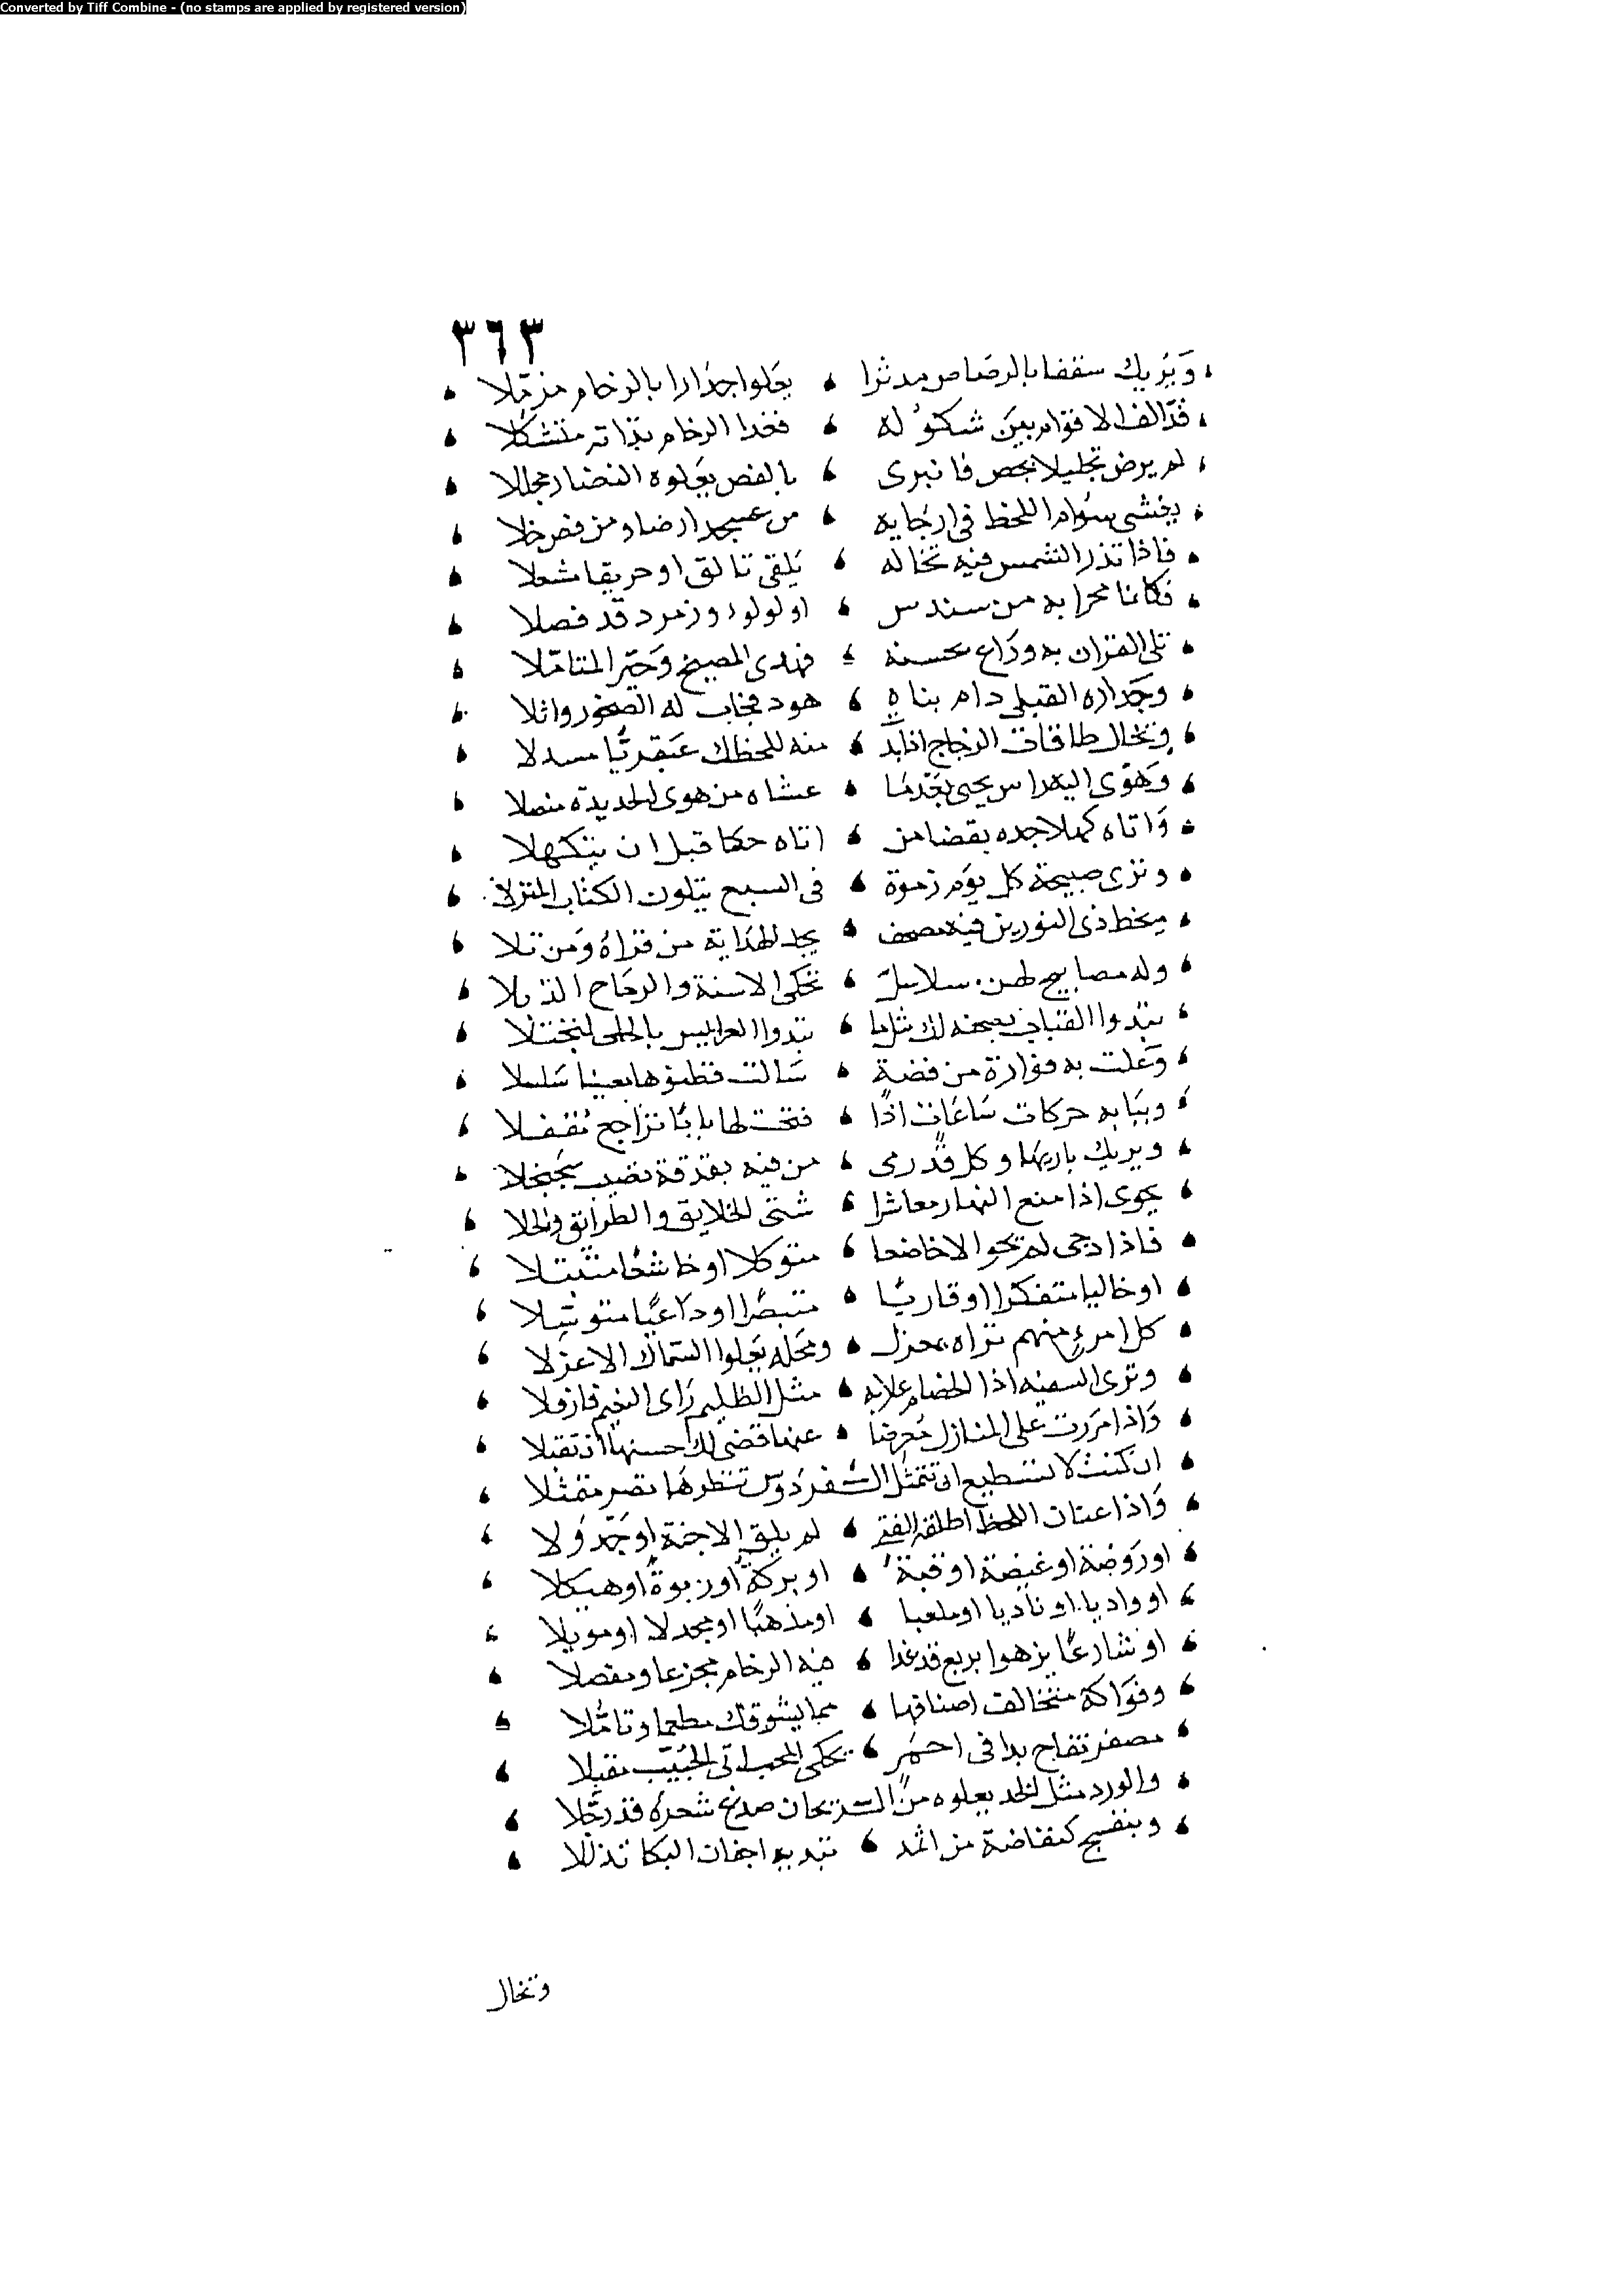 Converted by Tiff Combine - (no stamps are applied by registered version)
٣٦٣
وَيُريك سقفا بالرصَاص مدثرا يعَلوا جدَارا بالرخام مزمّلا
قدّ الف الاقوام بينَ شكوُله فغدا الرخام بتذاته متشكلا
لم يرض تجليلا بجص فانبرى بالفص يعَلوه النضار مجللا
يخشى سوام اللحظ في ارجَايه من عسجد ارضا ومن فص خلا
فاذا تذر الشمس فيه تخاله يَلقى تالق او حريقا مشعلا
فكانما محرابه من سندس او لولوء وزمرد قد فصلا
تلى القران به ورَاع بحسنه فهدى المصيخ وَحيّر المتامّلا
وجَداره القبلى دام بناهِ هود فجاب له الصخور واثلا
وتخال طاقات الزجاج اذا بدَّ منه للحظك عَبقريُّا مسدلا
وَهوَى اليه راس يحيى بَعدَمَا عشاه من هوى الحديدة منصلا
وَاتاه كهلا جده بقضا من اتاه حكما قبل ان يتكهلا
وترى صبيحة كل يوَم زمرة في السبع يتلون الكتاب المنزلا
بخط ذى النورين فيه مصحف يجد الهدَاية من قرَاهُ وَمن تلا
وله مصابيح لهن سلاسل تحكى الاسنة والرمَاح الذبلا
تبدوا القباب بصحنه لك مثلما تبدوا العرايس بالحلى لتجتلا
وَعلت به فوارة من فضة سَالت فظنوها معينا سَلسلا
وببَابه حركات سَاعَات اذًا فتحت لها بابًا تراجع مُقفلا
ويريك بازيها وكل قد رمى من فيه بندقة تصيب سَجنجلا
يحوى اذا متع النهار معاشرا شتى الخلايق والطرايق والحلا
فاذا دجى لم تحو الا خاضعا متوكلا او خاشعًا متبتلا
او خاليا متفكرا او قاريًا متبصًرا او داعيًا متوسّلا
كل امرءٍ منهم تراه بمعزل ومحَله يَعلوا السّماك الاعزلا
وَاذا مرَرت على المنازل مُعرضا عنها قضى لك حسنها ان تقبلا
ان كنت لا تستطيع ان تتمثل الــفردَوس تنظرهَا بمصر ممثلا
وَاذا عنان اللحظ اطلقه الفتى لم يلق الا جنة اوجَدوَلا
او رَوضة او غيضة او قبةُ او بركة او ربوةً او هيكلا
او واديا او ناديا او ملعبا او مذهبًا او مجدلا او مويلا
او شارعًا يزهوا بربع قد غدا فيه الرخام مجزعا ومفصلا
وفوَاكة متخالف اصنافها مما يشوقك مطعما وتامُّلا
مصفر تفاح بدا في احمَرِ يحكى المحب اتى الحَبيّب مقبلا
والورد مثل الخد يعلوه منً الــريحان صدغ شعره قد رجّلا
وبنفسج كنفاضة من اثمد تبديه اجفان البكا تذللا
وتخال